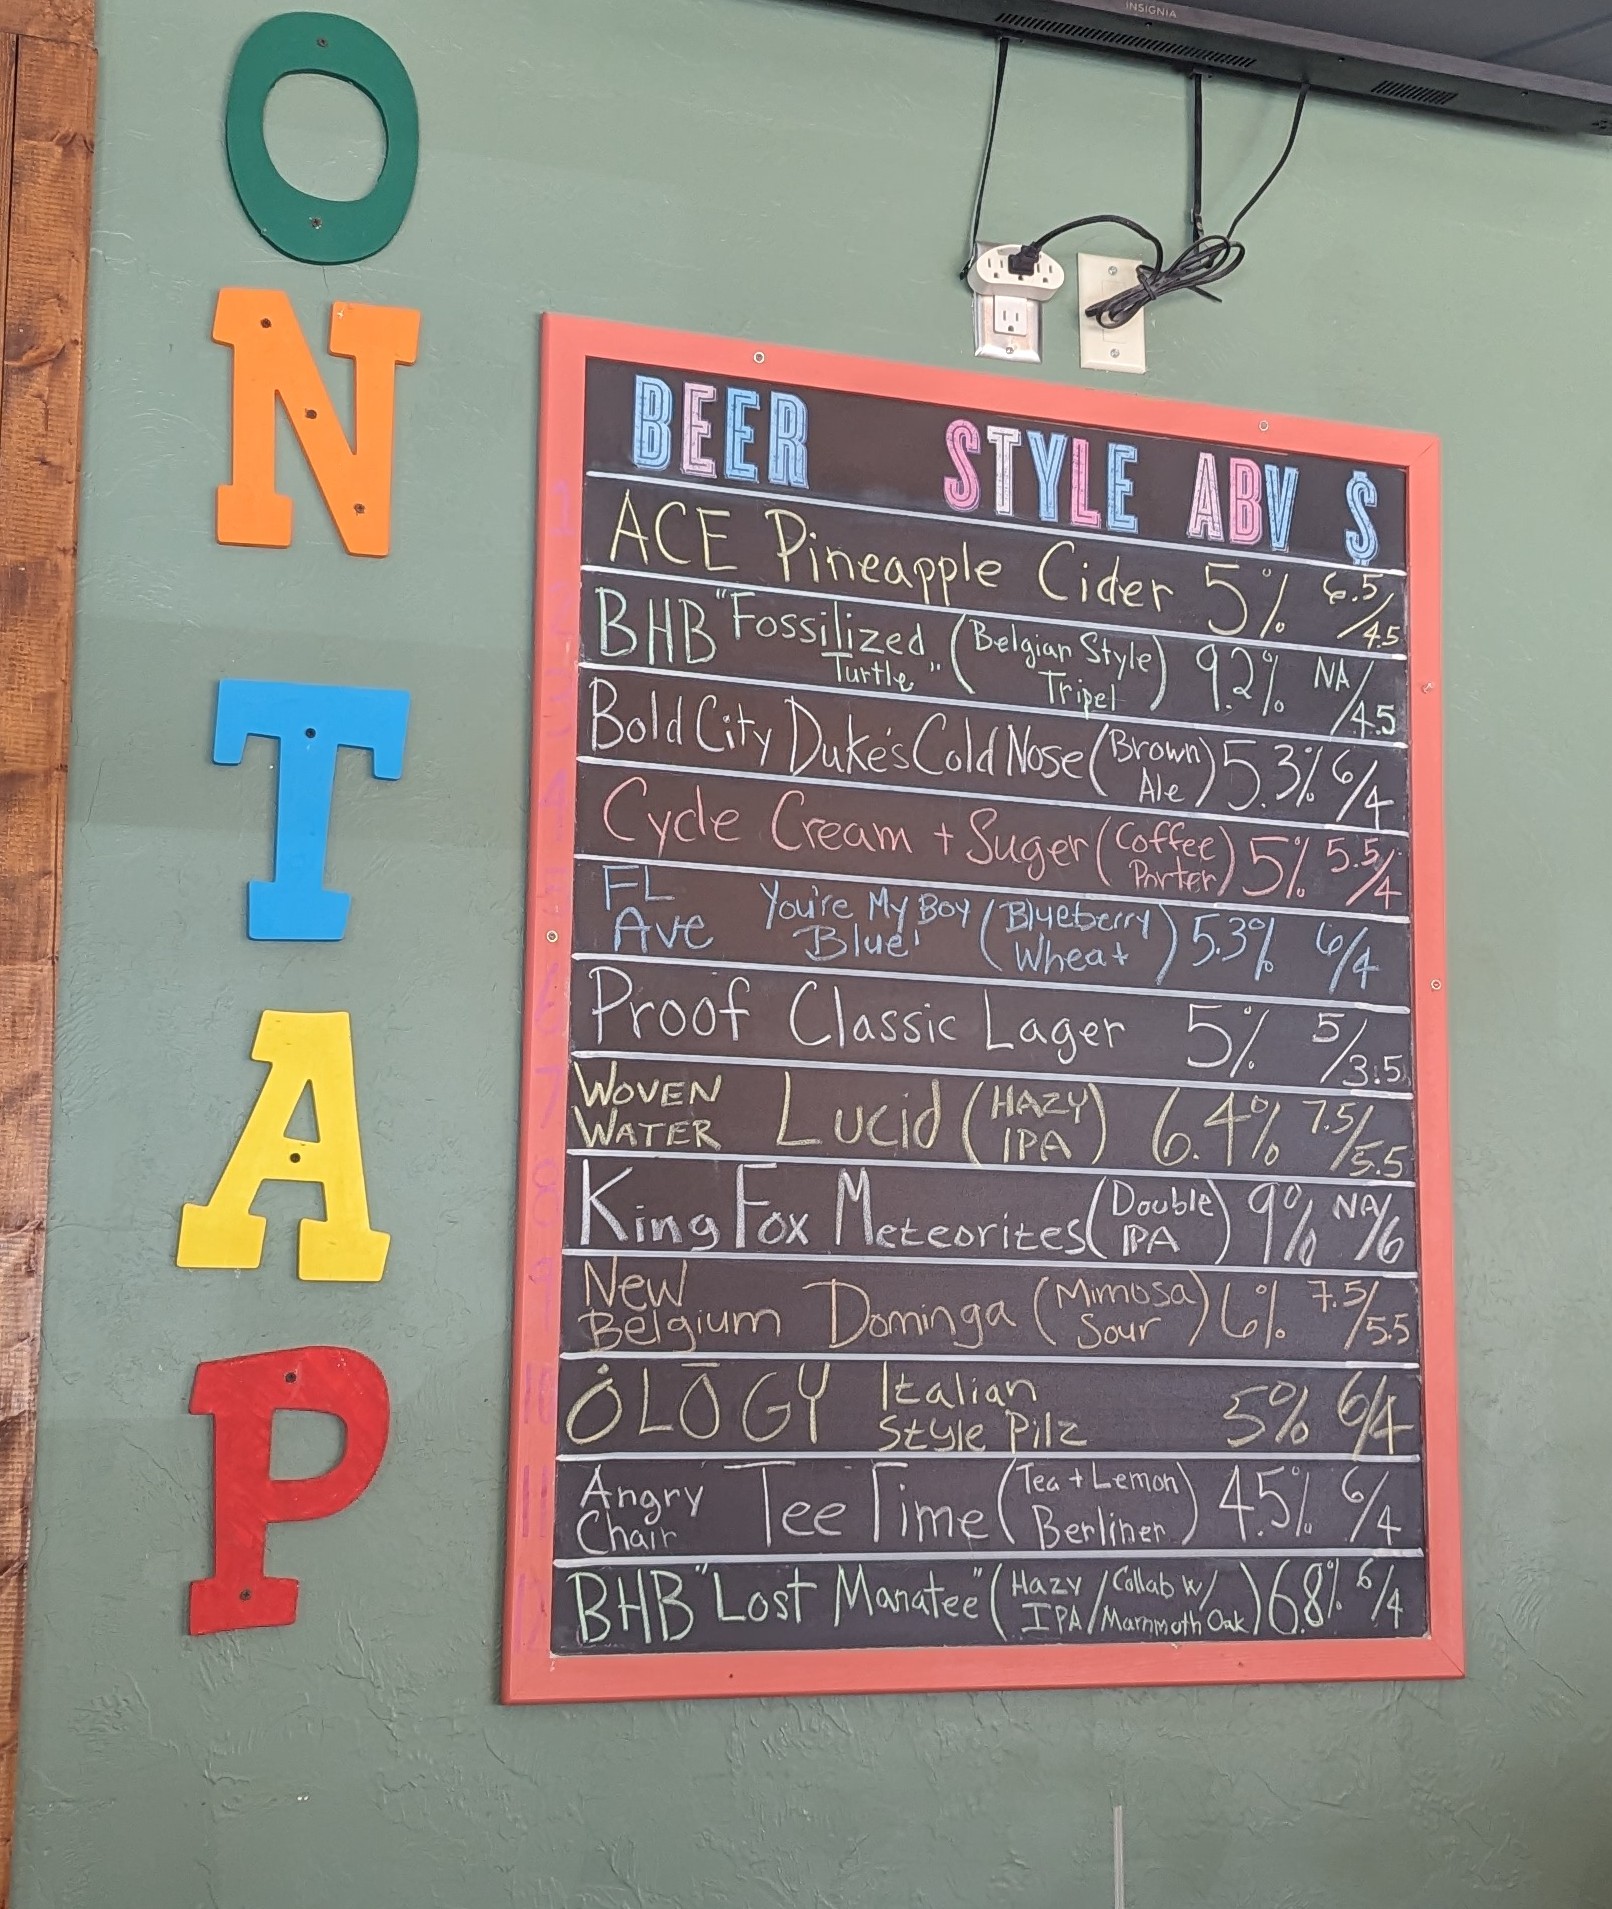 INSIGNIA
ON TAP
BEER STYLE ABV $
1 ACE Pineapple Cider 5% 6.5/4.5
2 BHB "Fossilized Turtle" (Belgian Style Tripel) 9.2% NA/4.5
3 Bold City Duke's Cold Nose (Brown Ale) 5.3% 6/4
4 Cycle Cream + Suger (Coffee Porter) 5% 5.5/4
5 FL Ave You're My Boy Blue! (Blueberry Wheat) 5.3% 6/4
6 Proof Classic Lager 5% 5/3.5
7 WOVEN WATER Lucid (HAZY IPA) 6.4% 7.5/5.5
8 King Fox Meteorites (Double IPA) 9% NA/6
9 New Belgium Dominga (Mimosa Sour) 6% 7.5/5.5
10 ÖLŌGY Italian Style Pilz 5% 6/4
11 Angry Chair Tee Time (Tea + Lemon Berliner) 4.5% 6/4
12 BHB "Lost Manatee" (Hazy IPA/Collab w/ Mammoth Oak) 6.8% 6/4